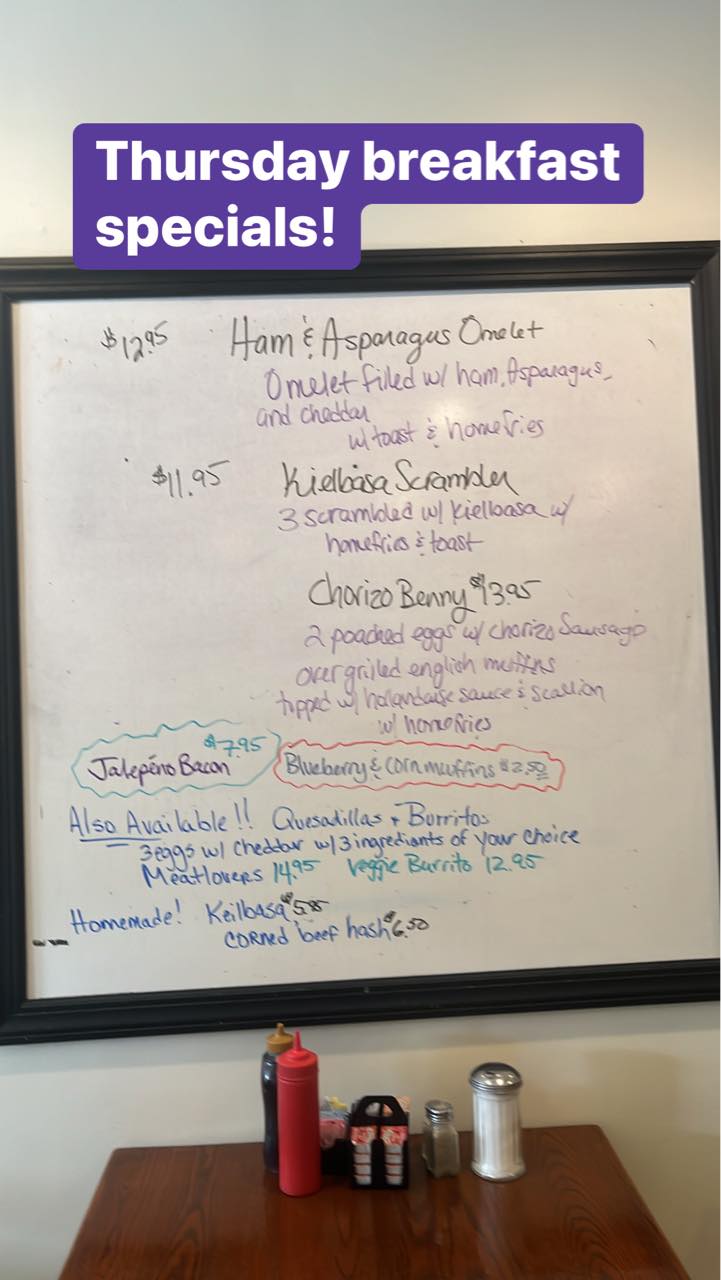 Thursday breakfast
specials!
$12.95 Ham & Asparagus Omelet
Omelet filled w/ ham, Asparagus,
and cheddar
w/ toast & homefries
$11.95 Kielbasa Scrambler
3 scrambled w/ kielbasa w/
homefries & toast
Chorizo Benny $13.95
2 poached eggs w/ chorizo Sausage
over grilled english muffins
topped w/ holandaise sauce & scallion
w/ homefries
$7.95
Jalepéno Bacon
Blueberry & corn muffins $2.50
Also Available!! Quesadillas + Burritos
3 eggs w/ cheddar w/ 3 ingrediants of your choice
Meatlovers 14.95 Veggie Burrito 12.95
Homemade! Keilbasa $5.95
corned beef hash $6.50